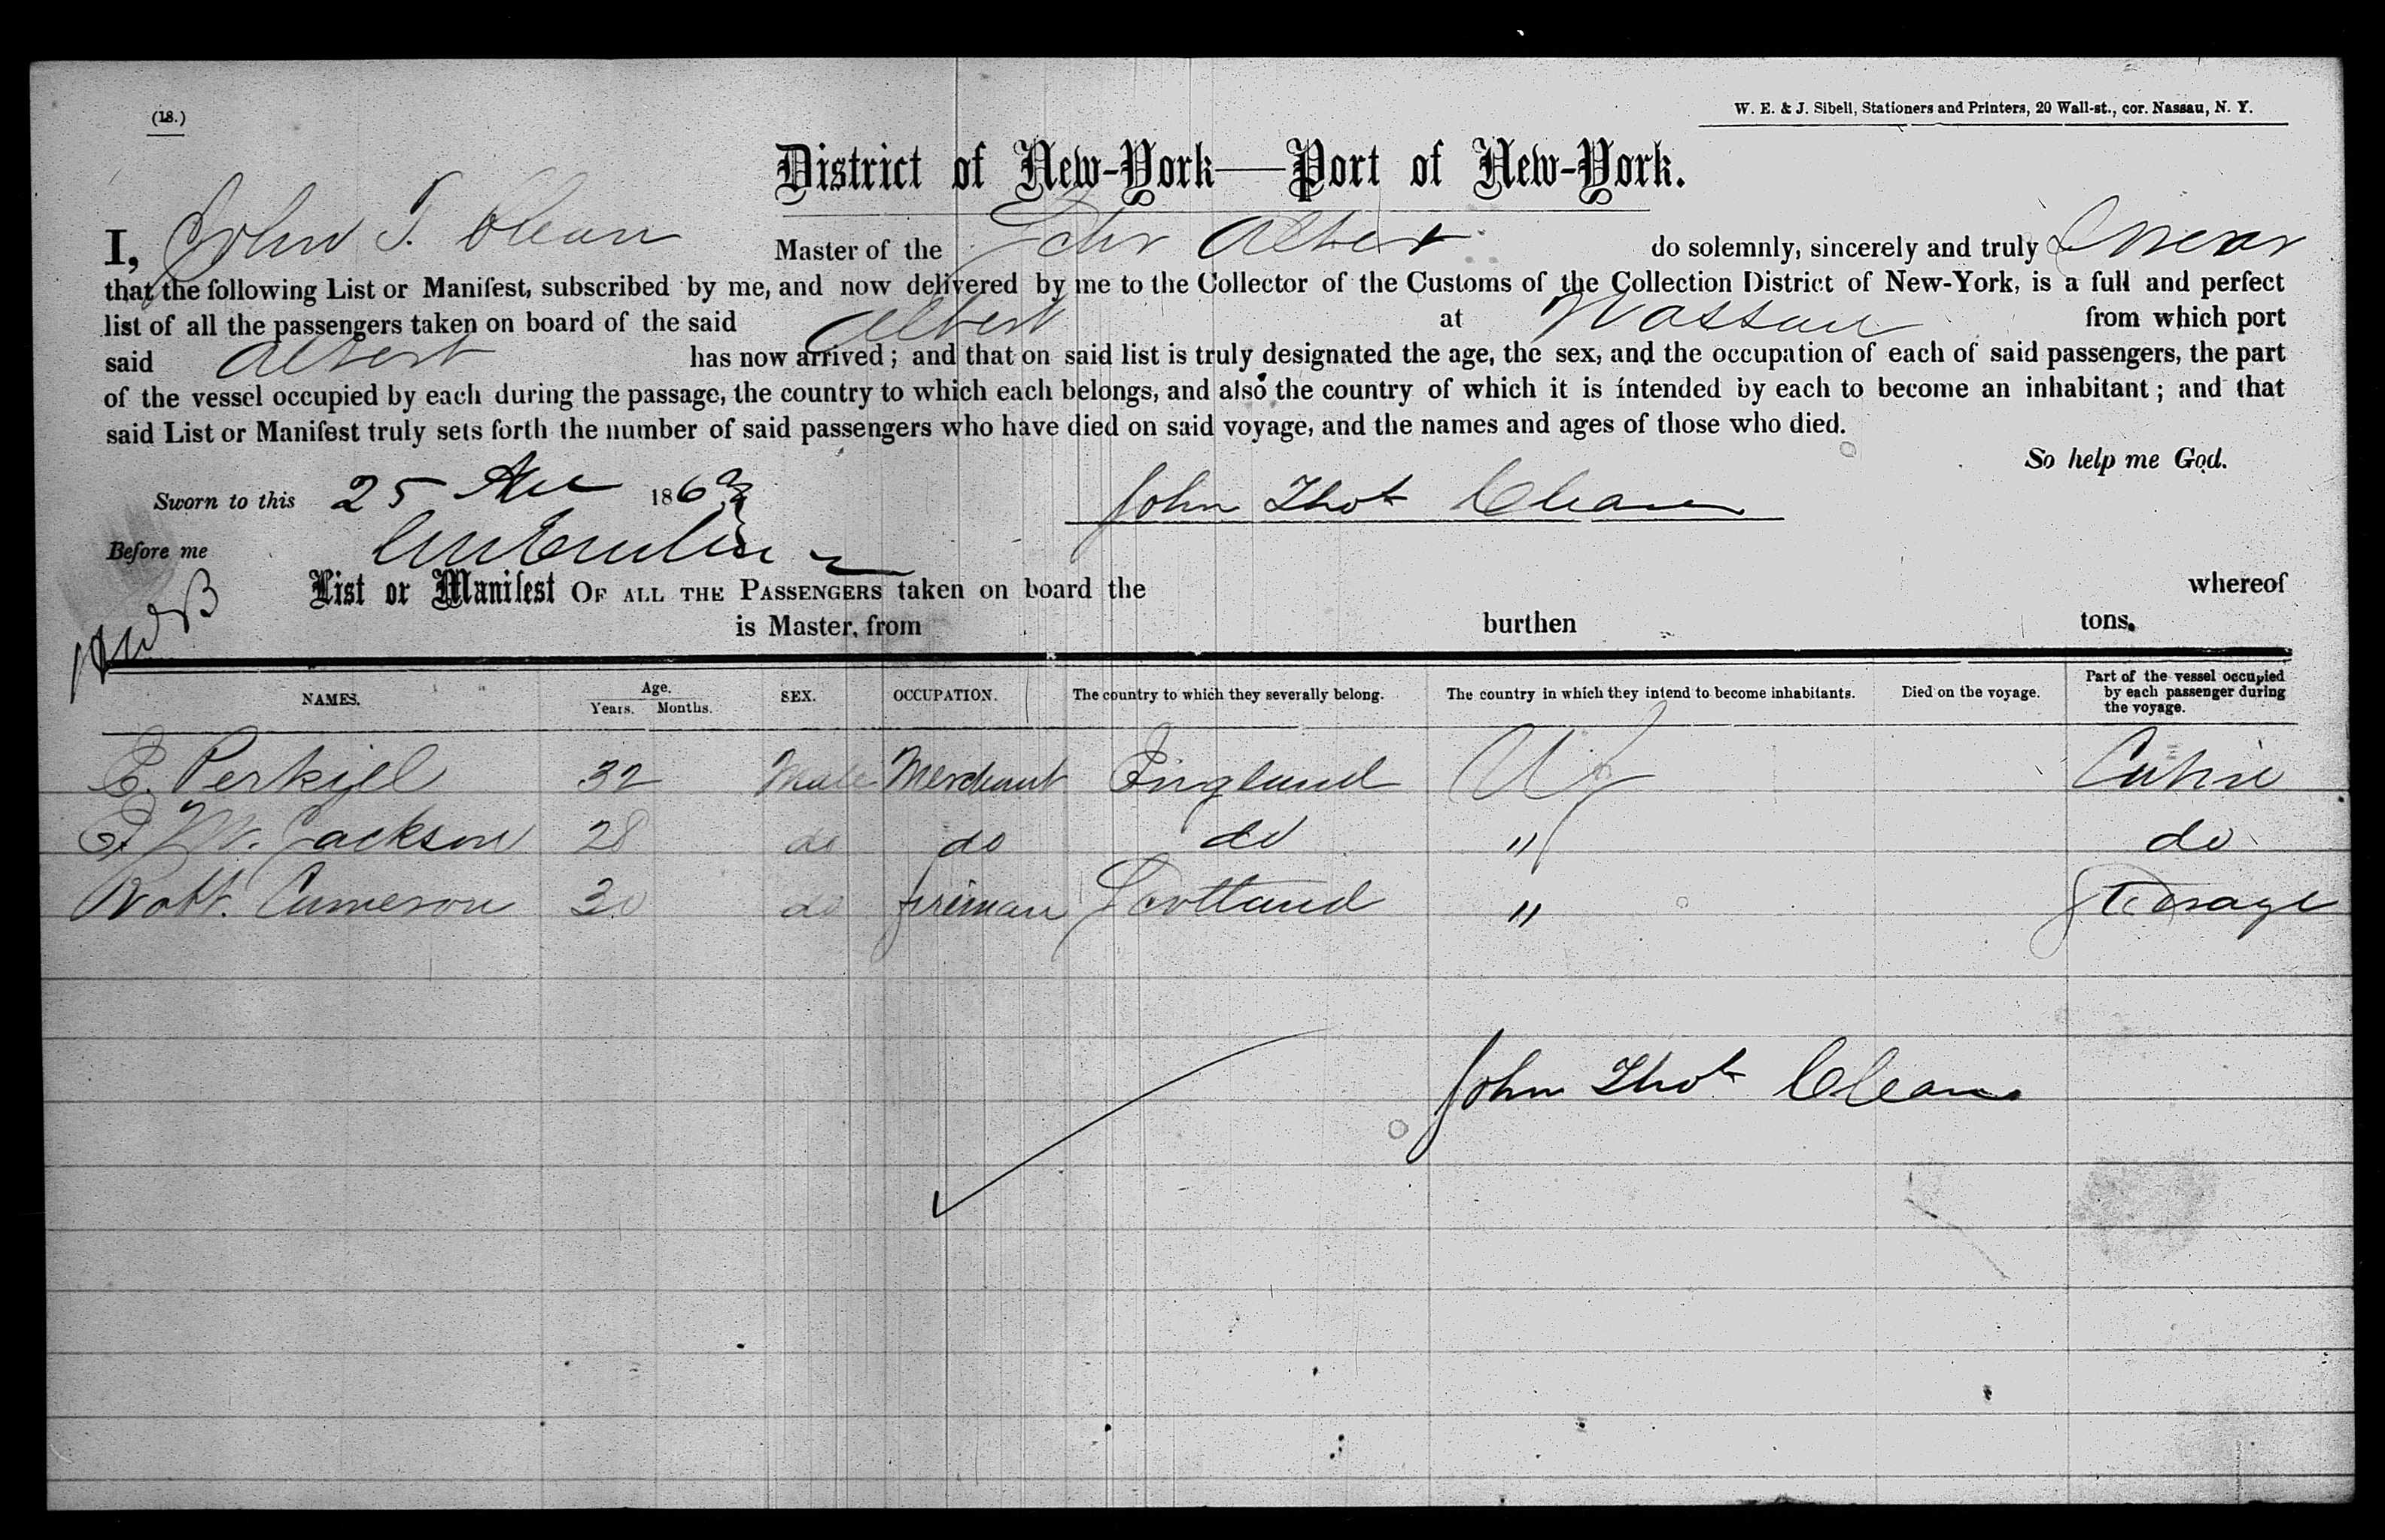 (18.)
W. E. & J. Sibell, Stationers and Printers, 20 Wall-st., cor. Nassau, N. Y.
District of New-York—Port of New-York.
I, John T. Clean Master of the Schr Albert do solemnly, sincerely and truly Swear
that the following List or Manifest, subscribed by me, and now delivered by me to the Collector of the Customs of the Collection District of New-York, is a full and perfect
list of all the passengers taken on board of the said Albert at Nassau from which port
said Albert has now arrived; and that on said list is truly designated the age, the sex, and the occupation of each of said passengers, the part
of the vessel occupied by each during the passage, the country to which each belongs, and also the country of which it is intended by each to become an inhabitant; and that
said List or Manifest truly sets forth the number of said passengers who have died on said voyage, and the names and ages of those who died.
So help me God.
Sworn to this 25 1863 John Thos Clean
Before me
List or Manifest OF ALL THE PASSENGERS taken on board the whereof
is Master, from burthen tons.
NAMES. Age. Years. Months. SEX. OCCUPATION. The country to which they severally belong. The country in which they intend to become inhabitants. Died on the voyage. Part of the vessel occupied by each passenger during the voyage.
E. 32 Male Merchant England US Cabin
W. Jackson 28 do do do " do
Robt. Cameron 30 do fireman Scotland " Steerage
John Thos Clean